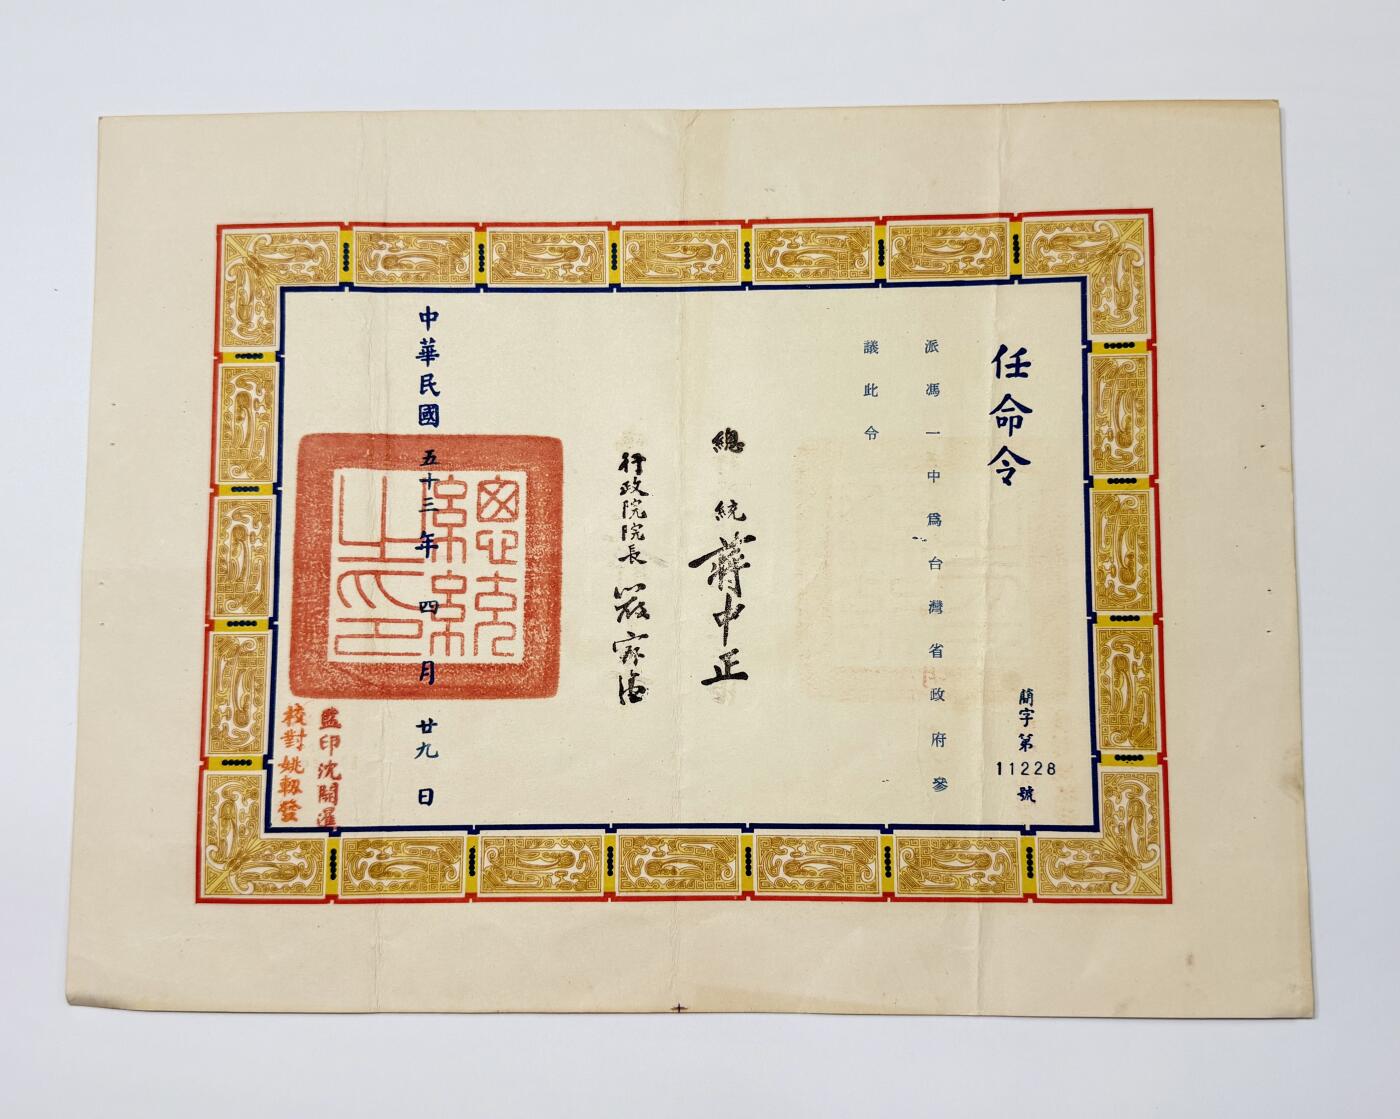 任命令
簡字第
11228
號
派馮一中爲台灣省政府參
議此令
總統 蔣中正
行政院院長 嚴家淦
中華民國五十三年四月廿九日
總統
之印
監印沈開運
校對姚軔發